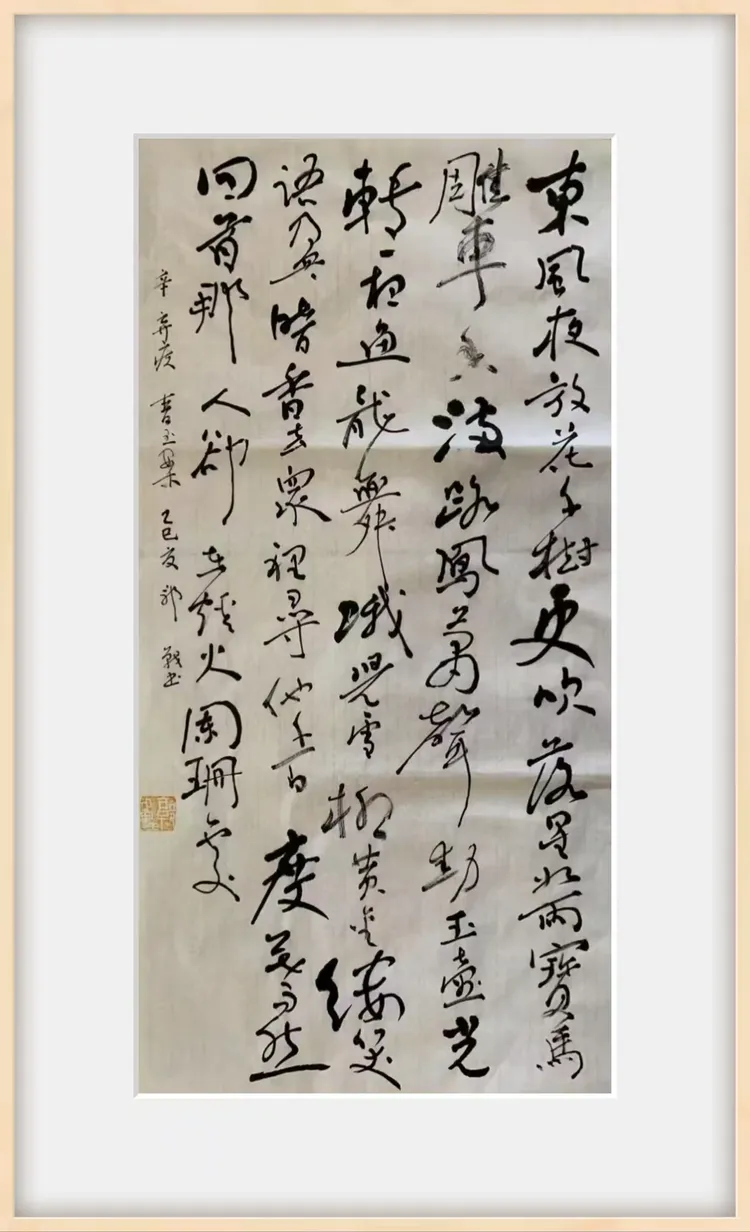 東風夜放花千樹更吹落星如雨寶馬
雕車香滿路鳳簫聲動玉壺光
轉一夜魚龍舞蛾兒雪柳黃金縷笑
語盈盈暗香去眾裡尋他千百度驀然
回首那人卻在燈火闌珊處
辛弃疾 青玉案 乙巳夏 書